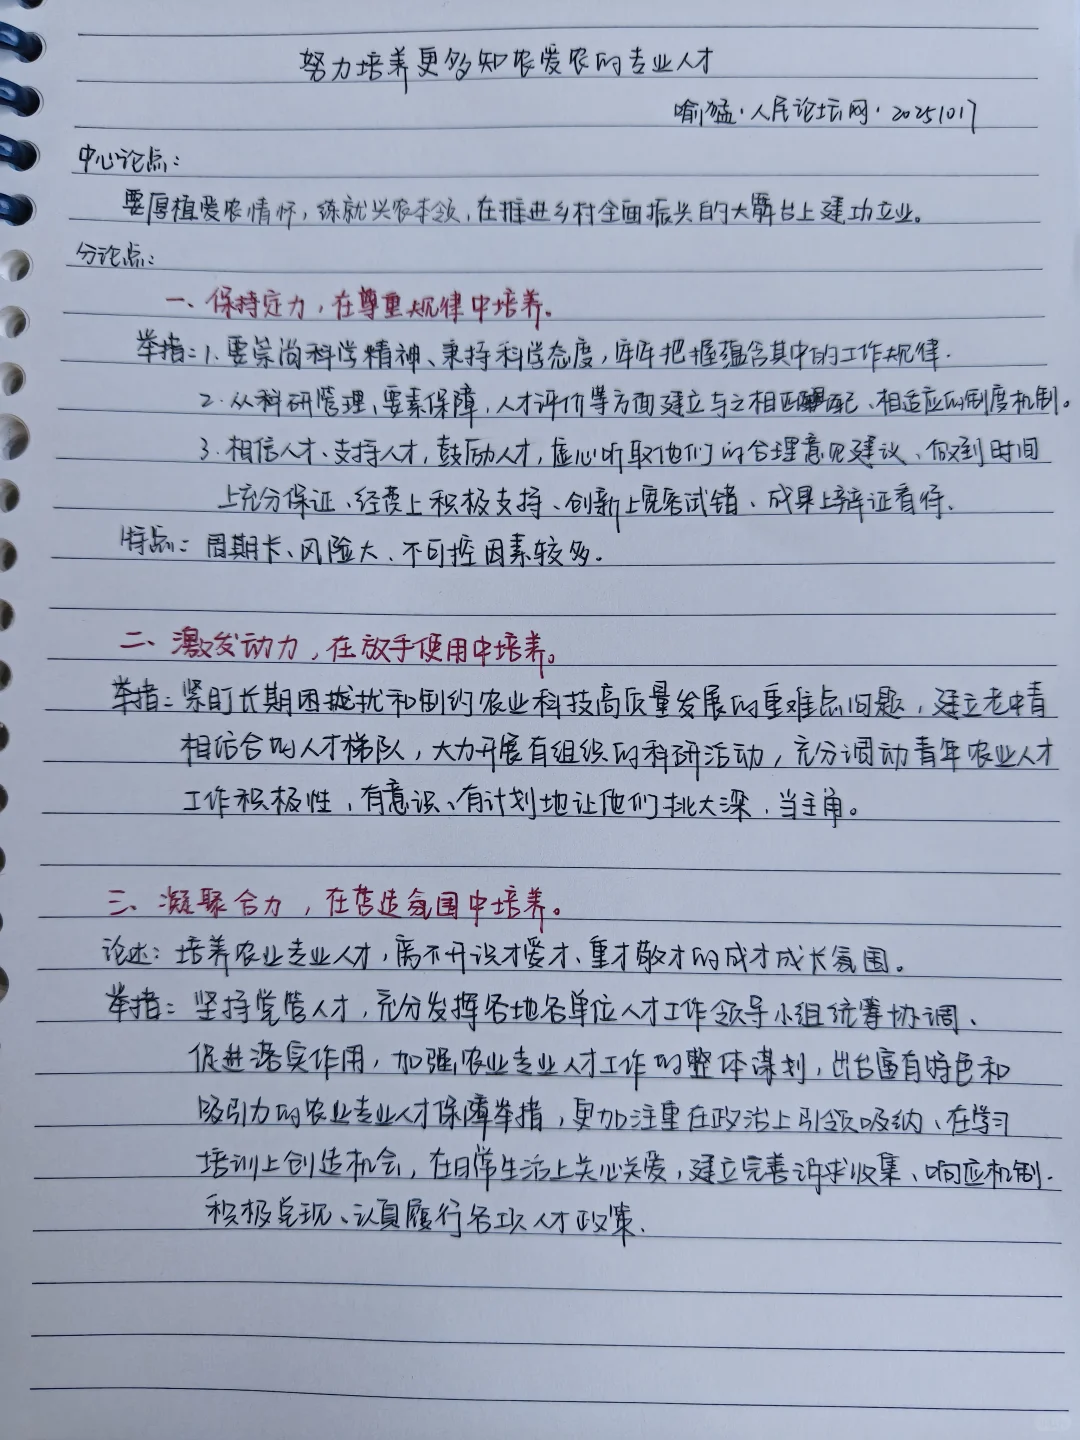 努力培养更多知农爱农的专业人才
喻猛·人民论坛网·20251017
中心论点：
要厚植爱农情怀，练就兴农本领，在推进乡村全面振兴的大舞台上建功立业。
分论点：
一、保持定力，在尊重规律中培养。
举措：1.要崇尚科学精神、秉持科学态度，牢牢把握蕴含其中的工作规律.
2.从科研管理、要素保障、人才评价等方面建立与之相匹配、相适应的制度机制。
3.相信人才、支持人才，鼓励人才，虚心听取他们的合理意见建议、做到时间
上充分保证、经费上积极支持、创新上宽容试错、成果上辩证看待.
特点：周期长、风险大、不可控因素较多.
二、激发动力，在放手使用中培养。
举措：紧盯长期困扰和制约农业科技高质量发展的重难点问题，建立老中青
相结合的人才梯队，大力开展有组织的科研活动，充分调动青年农业人才
工作积极性，有意识、有计划地让他们挑大梁、当主角。
三、凝聚合力，在营造氛围中培养。
论述：培养农业专业人才，离不开识才爱才、重才敬才的成才成长氛围。
举措：坚持党管人才，充分发挥各地各单位人才工作领导小组统筹协调、
促进落实作用，加强农业专业人才工作的整体谋划，出台富有特色和
吸引力的农业专业人才保障举措，更加注重在政治上引领吸纳、在学习
培训上创造机会，在日常生活上关心关爱，建立完善诉求收集、响应机制.
积极兑现、认真履行各项人才政策.